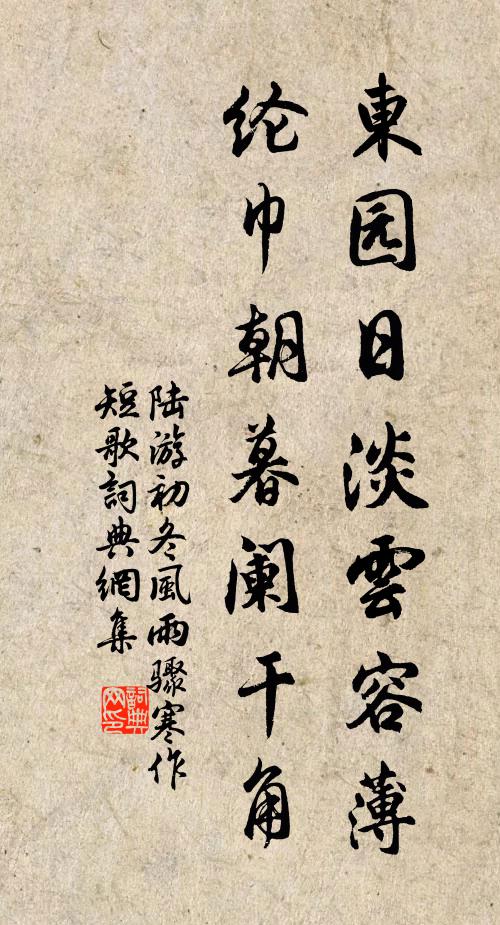 東园日淡雲容薄
纶巾朝暮阑干角
陆游初冬風雨驟寒作
短歌詞典網集
詞典
网印